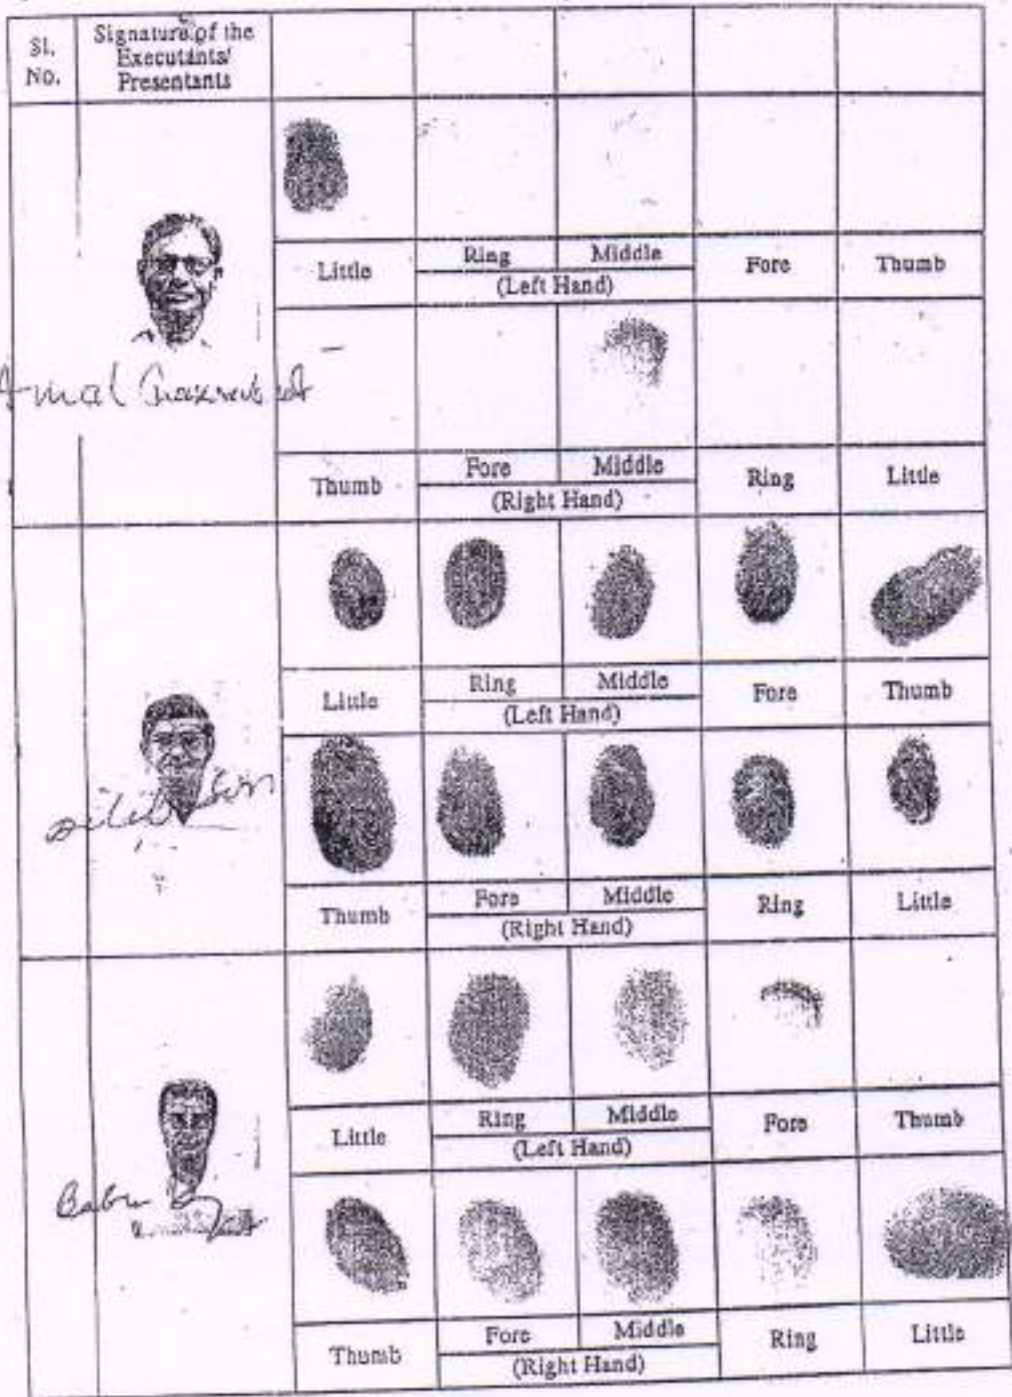 Sl. No.
Signature of the Executants/ Presentants
Little Ring Middle Fore Thumb
(Left Hand)
Amal
Thumb Fore Middle Ring Little
(Right Hand)
Little Ring Middle Fore Thumb
(Left Hand)
Thumb Fore Middle Ring Little
(Right Hand)
Little Ring Middle Fore Thumb
(Left Hand)
Babu
Thumb Fore Middle Ring Little
(Right Hand)